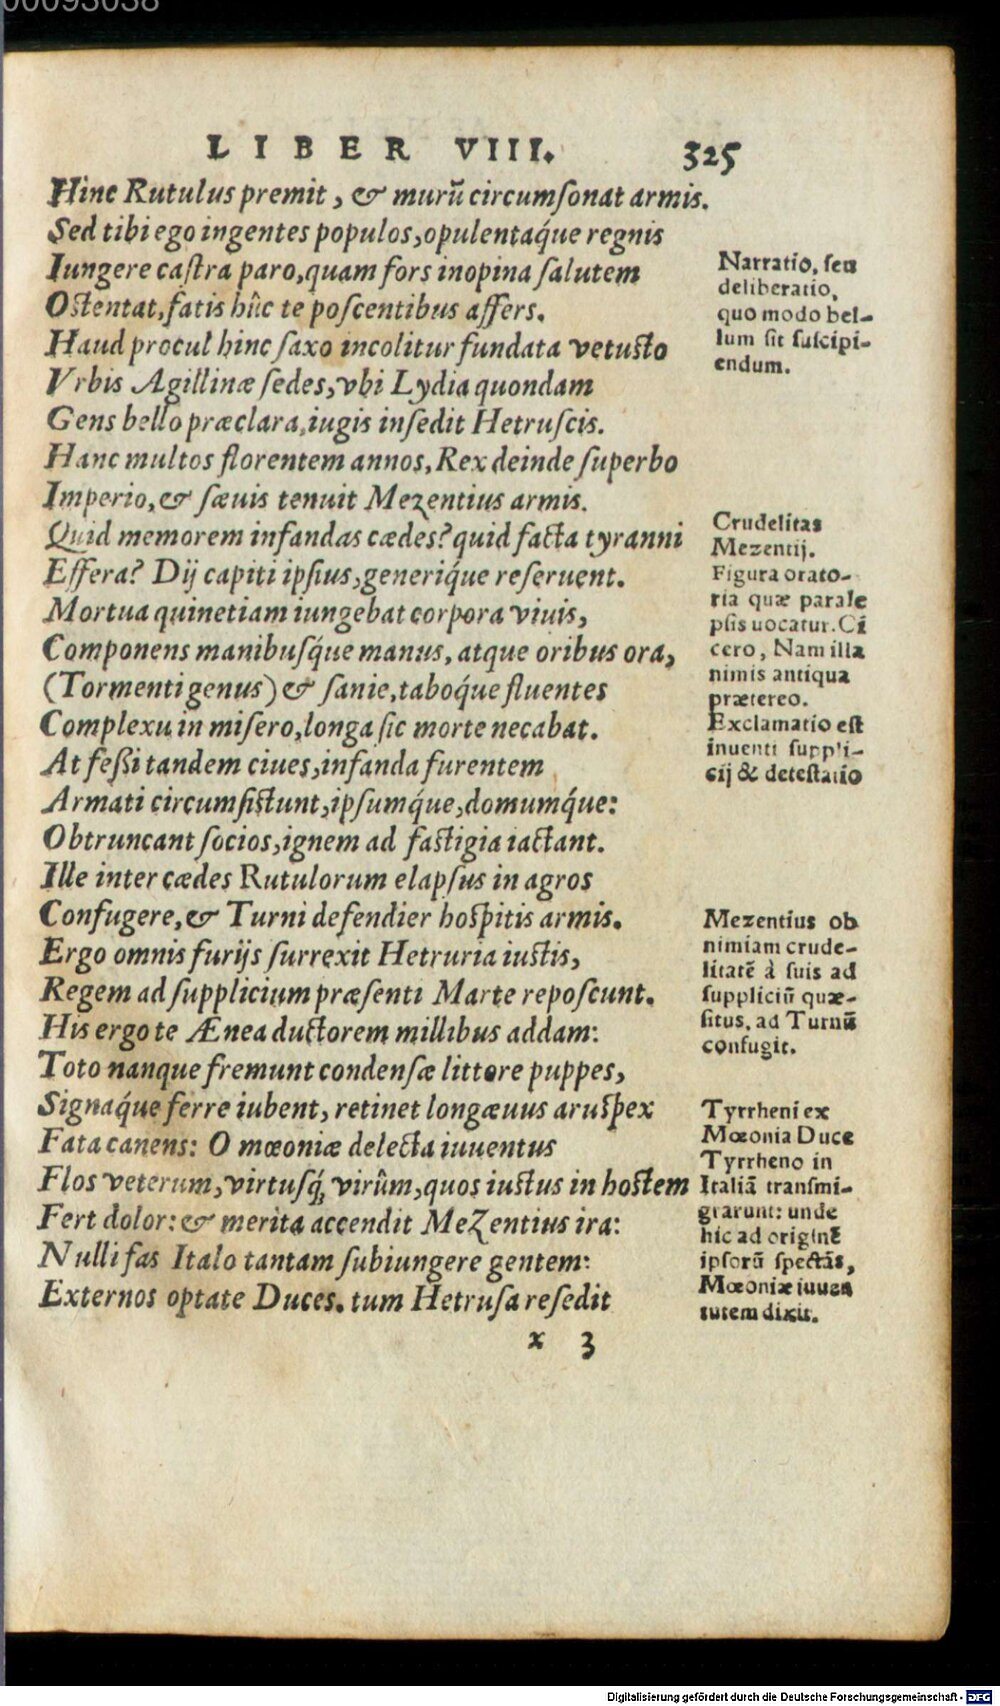 00093038
LIBER VIII. 325
Hinc Rutulus premit, & murũ circumſonat armis.
Sed tibi ego ingentes populos, opulentaq́ue regnis
Iungere caſtra paro, quam fors inopina ſalutem
Oſtentat, fatis hûc te poſcentibus affers.
Haud procul hinc ſaxo incolitur fundata vetuſto
Vrbis Agillinæ ſedes, vbi Lydia quondam
Gens bello præclara, iugis inſedit Hetruſcis.
Hanc multos florentem annos, Rex deinde ſuperbo
Imperio, & ſæuis tenuit Mezentius armis.
Quid memorem infandas cædes? quid facta tyranni
Effera? Dij capiti ipſius, generiq́ue reſeruent.
Mortua quinetiam iungebat corpora viuis,
Componens manibuſq́ue manus, atque oribus ora,
(Tormenti genus) & ſanie, taboq́ue fluentes
Complexu in miſero, longa ſic morte necabat.
At feſſi tandem ciues, infanda furentem
Armati circumſiſtunt, ipſumq́ue, domumq́ue:
Obtruncant ſocios, ignem ad faſtigia iactant.
Ille inter cædes Rutulorum elapſus in agros
Confugere, & Turni defendier hoſpitis armis.
Ergo omnis furijs ſurrexit Hetruria iuſtis,
Regem ad ſupplicium præſenti Marte repoſcunt.
His ergo te Ænea ductorem millibus addam:
Toto nanque fremunt condenſæ littore puppes,
Signaq́ue ferre iubent, retinet longæuus aruſpex
Fata canens: O mœoniæ delecta iuuentus
Flos veterum, virtuſq́; virûm, quos iuſtus in hoſtem
Fert dolor: & merita accendit Mezentius ira:
Nulli fas Italo tantam ſubiungere gentem:
Externos optate Duces. tum Hetruſa reſedit
x 3
Narratio, ſeu
deliberatio,
quo modo bel-
lum ſit ſuſcipi-
endum.
Crudelitas
Mezentij.
Figura orato-
ria quæ parale
pſis uocatur. Ci
cero, Nam illa
nimis antiqua
prætereo.
Exclamatio eſt
inuenti ſuppli-
cij & deteſtatio
Mezentius ob
nimiam crude-
litatẽ à ſuis ad
ſuppliciũ quæ-
ſitus, ad Turnũ
confugit.
Tyrrheni ex
Mœonia Duce
Tyrrheno in
Italiã tranſmi-
grarunt: unde
hic ad originẽ
ipſorũ ſpectãs,
Mœoniæ iuuen
tutem dixit.
Digitalisierung gefördert durch die Deutsche Forschungsgemeinschaft - DFG